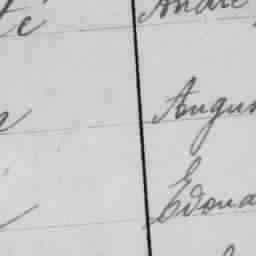 té André
Augus
Edoua